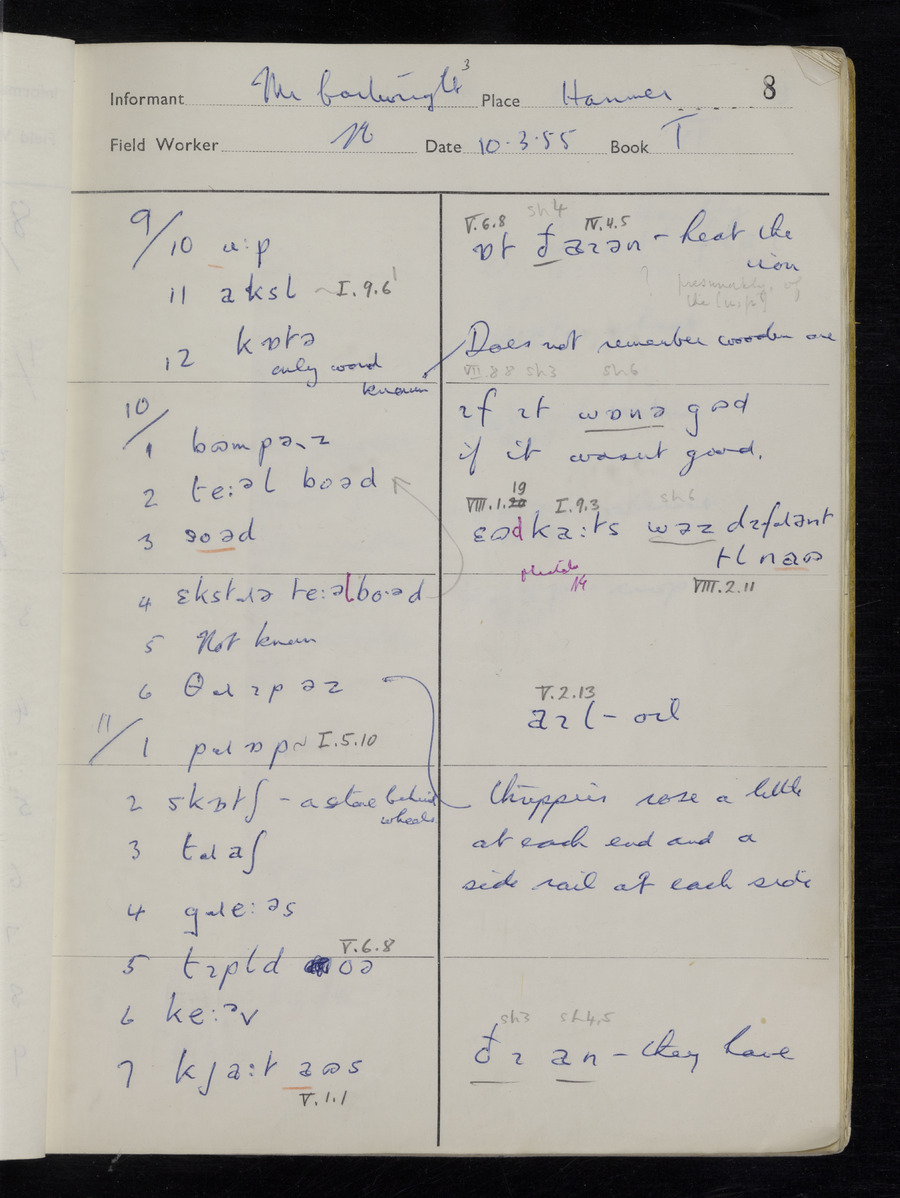 8
Informant Mr Cartwright 3 Place Hanmer
Field Worker N Date 10.3.55 Book T
9/10 u:p
11 aksl ~ I.9.6
12 kɒtə
only word
known
10/
1 bʊmpəɹz
2 te:əl boəd
3 ɹoəd
4 ɛkstɹə te:əlbo:əd
5 Not known
6 θɹɪpəz
11/1 pɹɒp ~ I.5.10
2 skɒtʃ – a stone behind
wheels
3 tɹaʃ
4 gɹe:əs
5 tɪpld oə
V.6.8
6 ke:əv
7 kja:t aʊs
V.1.1
V.6.8 sh4 IV.4.5
ɒt đ aɪən – heat the
iron
? presumably, of
the
Does not remember wooden one
VII.8.8 sh3 sh6
ɪf ɪt wɒnə gʊd
if it wasn't good.
VIII.1.20 19 I.9.3 sh6
ɛʊdka:ts wəz dɪfɹənt
tl naʊ
VIII.2.11
V.2.13
aɪl – oil
Thrippers rose a little
at each end and a
side rail at each side
sh3 sh4,5
đɪ an – they have